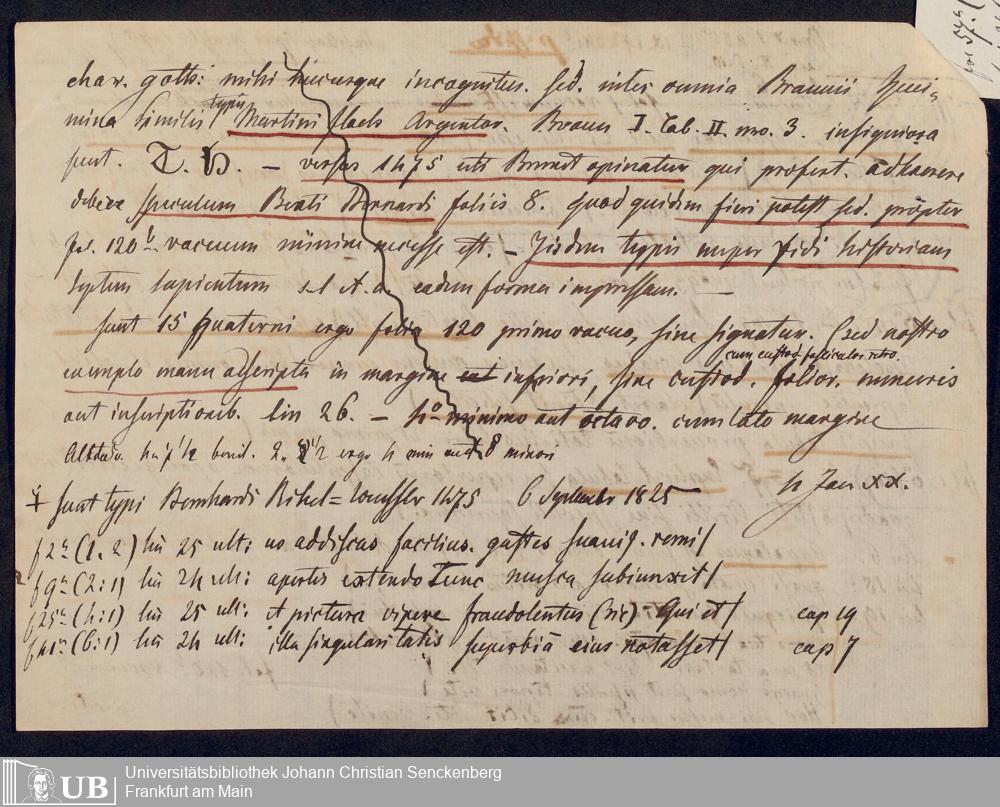 char. gothi: mihi huccusque incognitus. sed. inter omnia Braunii Speci=
mina similis typis Martini Flach Argentor. Braun I. tab. II. no. 3. insigniora
sunt. T. H. — versus 1475 uti Brunet opinatur qui profert. adhaerere
debere speculum Beati Bernardi foliis 8. quod quidem fieri potest sed. propter
fol. 120 b. vacuum minime necesse est. — Iisdem typis nuper vidi historiam
Septem sapientum s. l. et. a. eadem forma impressam. —
Sunt 15 quaterni ergo folia 120 primo vacuo, sine signatur. (sed nostro
exemplo manu adscriptis in margine inferiori, sine custod. folior. numeris
cum custod. fasciculor. retro.
aut inscriptionib. lin 26. — 4o minimo aut octavo. cum lato margine
4 Jan xx.
Sunt typi Bernhardi Rihel = 1475 6 September 1825
f 2a (1. 2) lin 25 ult: uo addiscas facilius. gustes suauiq. remi/
f 9a (2: 1) lin 24 ult: apertis extendo Tunc musca subiunxit/
f 25a (4: 1) lin 25 ult: et pictura vipere fraudolentus (sic) Qui et/ cap 19
f 41a (6: 1) lin 24 ult: illa singularitatis superbiā eius notasset/ cap 7
Universitätsbibliothek Johann Christian Senckenberg
Frankfurt am Main
UB